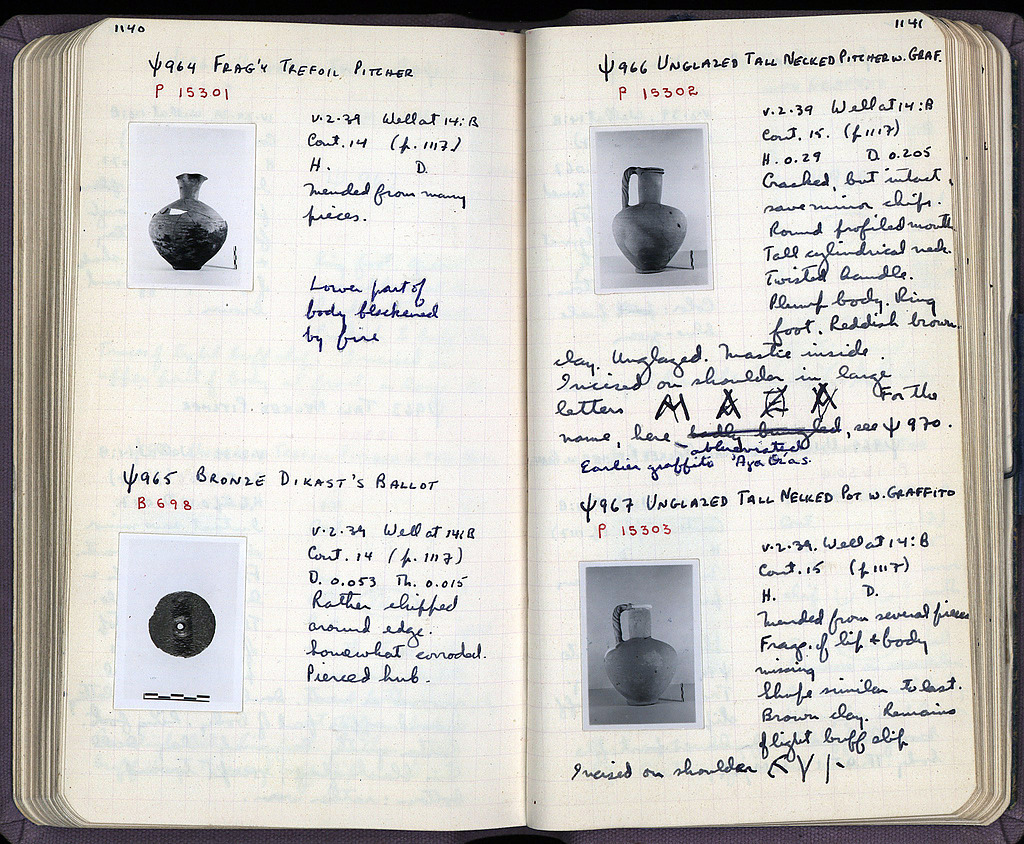 1140
Ψ964 FRAG'Y TREFOIL PITCHER
P 15301
V.2.39 Well at 14:B
Cont. 14 (p. 1117)
H. D.
Mended from many
pieces.
Lower part of
body blackened
by fire
Ψ965 BRONZE DIKAST'S BALLOT
B 698
V.2.39 Well at 14:B
Cont. 14 (p. 1117)
D. 0.053 Th. 0.015
Rather chipped
around edge.
Somewhat corroded.
Pierced hub.
1141
Ψ966 UNGLAZED TALL NECKED PITCHER W. GRAF.
P 15302
V.2.39 Well at 14:B
Cont. 15. (p. 1117)
H. 0.29 D. 0.205
Cracked, but intact,
save minor chips.
Round profiled mouth
Tall cylindrical neck.
Twisted handle.
Plump body. Ring
foot. Reddish brown
clay. Unglazed. Mastic inside.
Incised on shoulder in large
letters For the
name, here badly bungled, see Ψ 970.
abbreviated
Earlier graffito
Ψ967 UNGLAZED TALL NECKED POT W. GRAFFITO
P 15303
V.2.39. Well at 14:B
Cont. 15 (p. 1117)
H. D.
Mended from several pieces
Frags. of lip & body
missing
Shape similar to last.
Brown clay. Remains
of light buff slip
Incised on shoulder